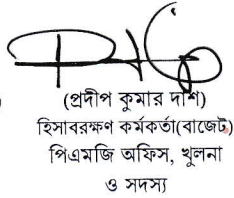 (প্রদীপ কুমার দাশ)
হিসাবরক্ষণ কর্মকর্তা(বাজেট)
পিএমজি অফিস, খুলনা
ও সদস্য